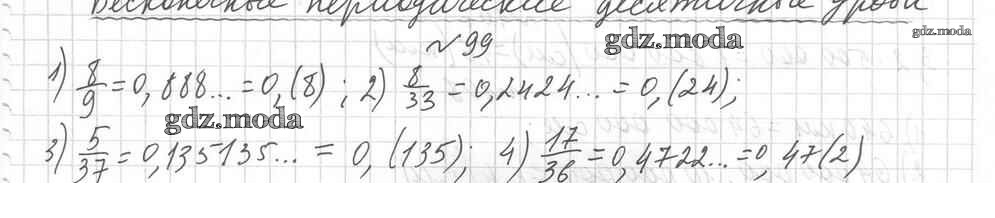 Бесконечные периодические десятичные дроби
№99
gdz.moda
gdz.moda
1) 8/9 = 0,888... = 0,(8) ; 2) 8/33 = 0,2424... = 0,(24);
gdz.moda
3) 5/37 = 0,135135... = 0,(135); 4) 17/36 = 0,4722... = 0,47(2)